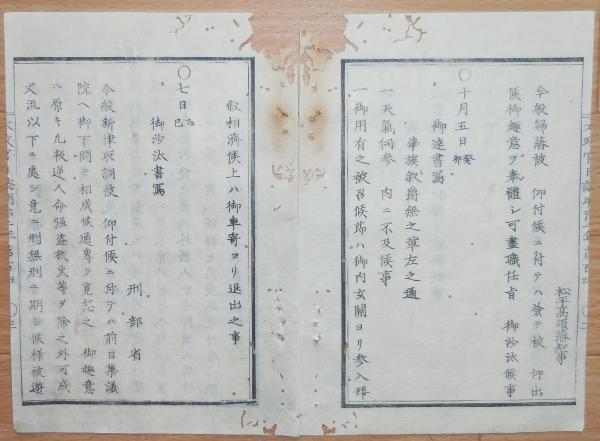 松平高須藩知事
今般歸藩被　仰付候ニ付テハ兼テ被　仰出
候御趣意ヲ奉體シ可盡職任旨　御沙汰候事
〇十月五日癸卯
御達書寫
華族叙爵無之輩左之通
一天氣伺参　内ニ不及候事
一御用有之被召候節ハ御内玄關ヨリ参入拝
叙相濟候上ハ御車寄ヨリ退出之事
〇七日乙巳
御沙汰書寫
刑部省
今般新律取調被　仰付候ニ付テハ前日集議
院ヘ御下問ニ相成候通専ラ寛恕之　御趣意
ニ原キ九叛逆人命强盗放火等ヲ除之外可成
丈流以下ニ處シ竟ニ刑無刑ニ期シ候様被遊